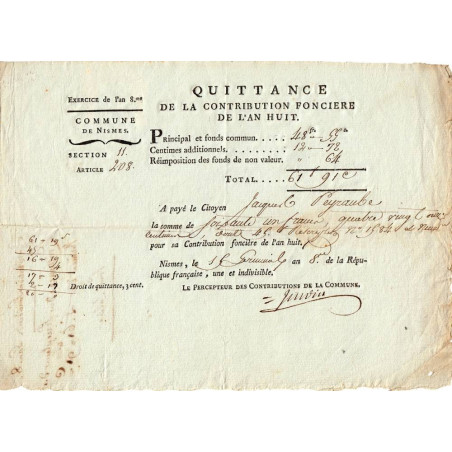 Exercice de l'an 8.me
COMMUNE
DE NISMES.
SECTION 11
ARTICLE 208.
QUITTANCE
DE LA CONTRIBUTION FONCIERE
DE L'AN HUIT.
Principal et fonds commun. . . . 48
Centimes additionnels. . . . . 12 — 78
Réimposition des fonds de non valeur. " 64
TOTAL. . . . . 61 f 91 c
A payé le Citoyen Jacques Peyraube
la somme de soixante un francs quatre vingt onze
centimes
pour sa Contribution foncière de l'an huit.
Nismes, le Germinal an 8.e de la Répu-
blique française, une et indivisible.
LE PERCEPTEUR DES CONTRIBUTIONS DE LA COMMUNE.
61 - 19
45
16 - 19
Droit de quittance, 3 cent.